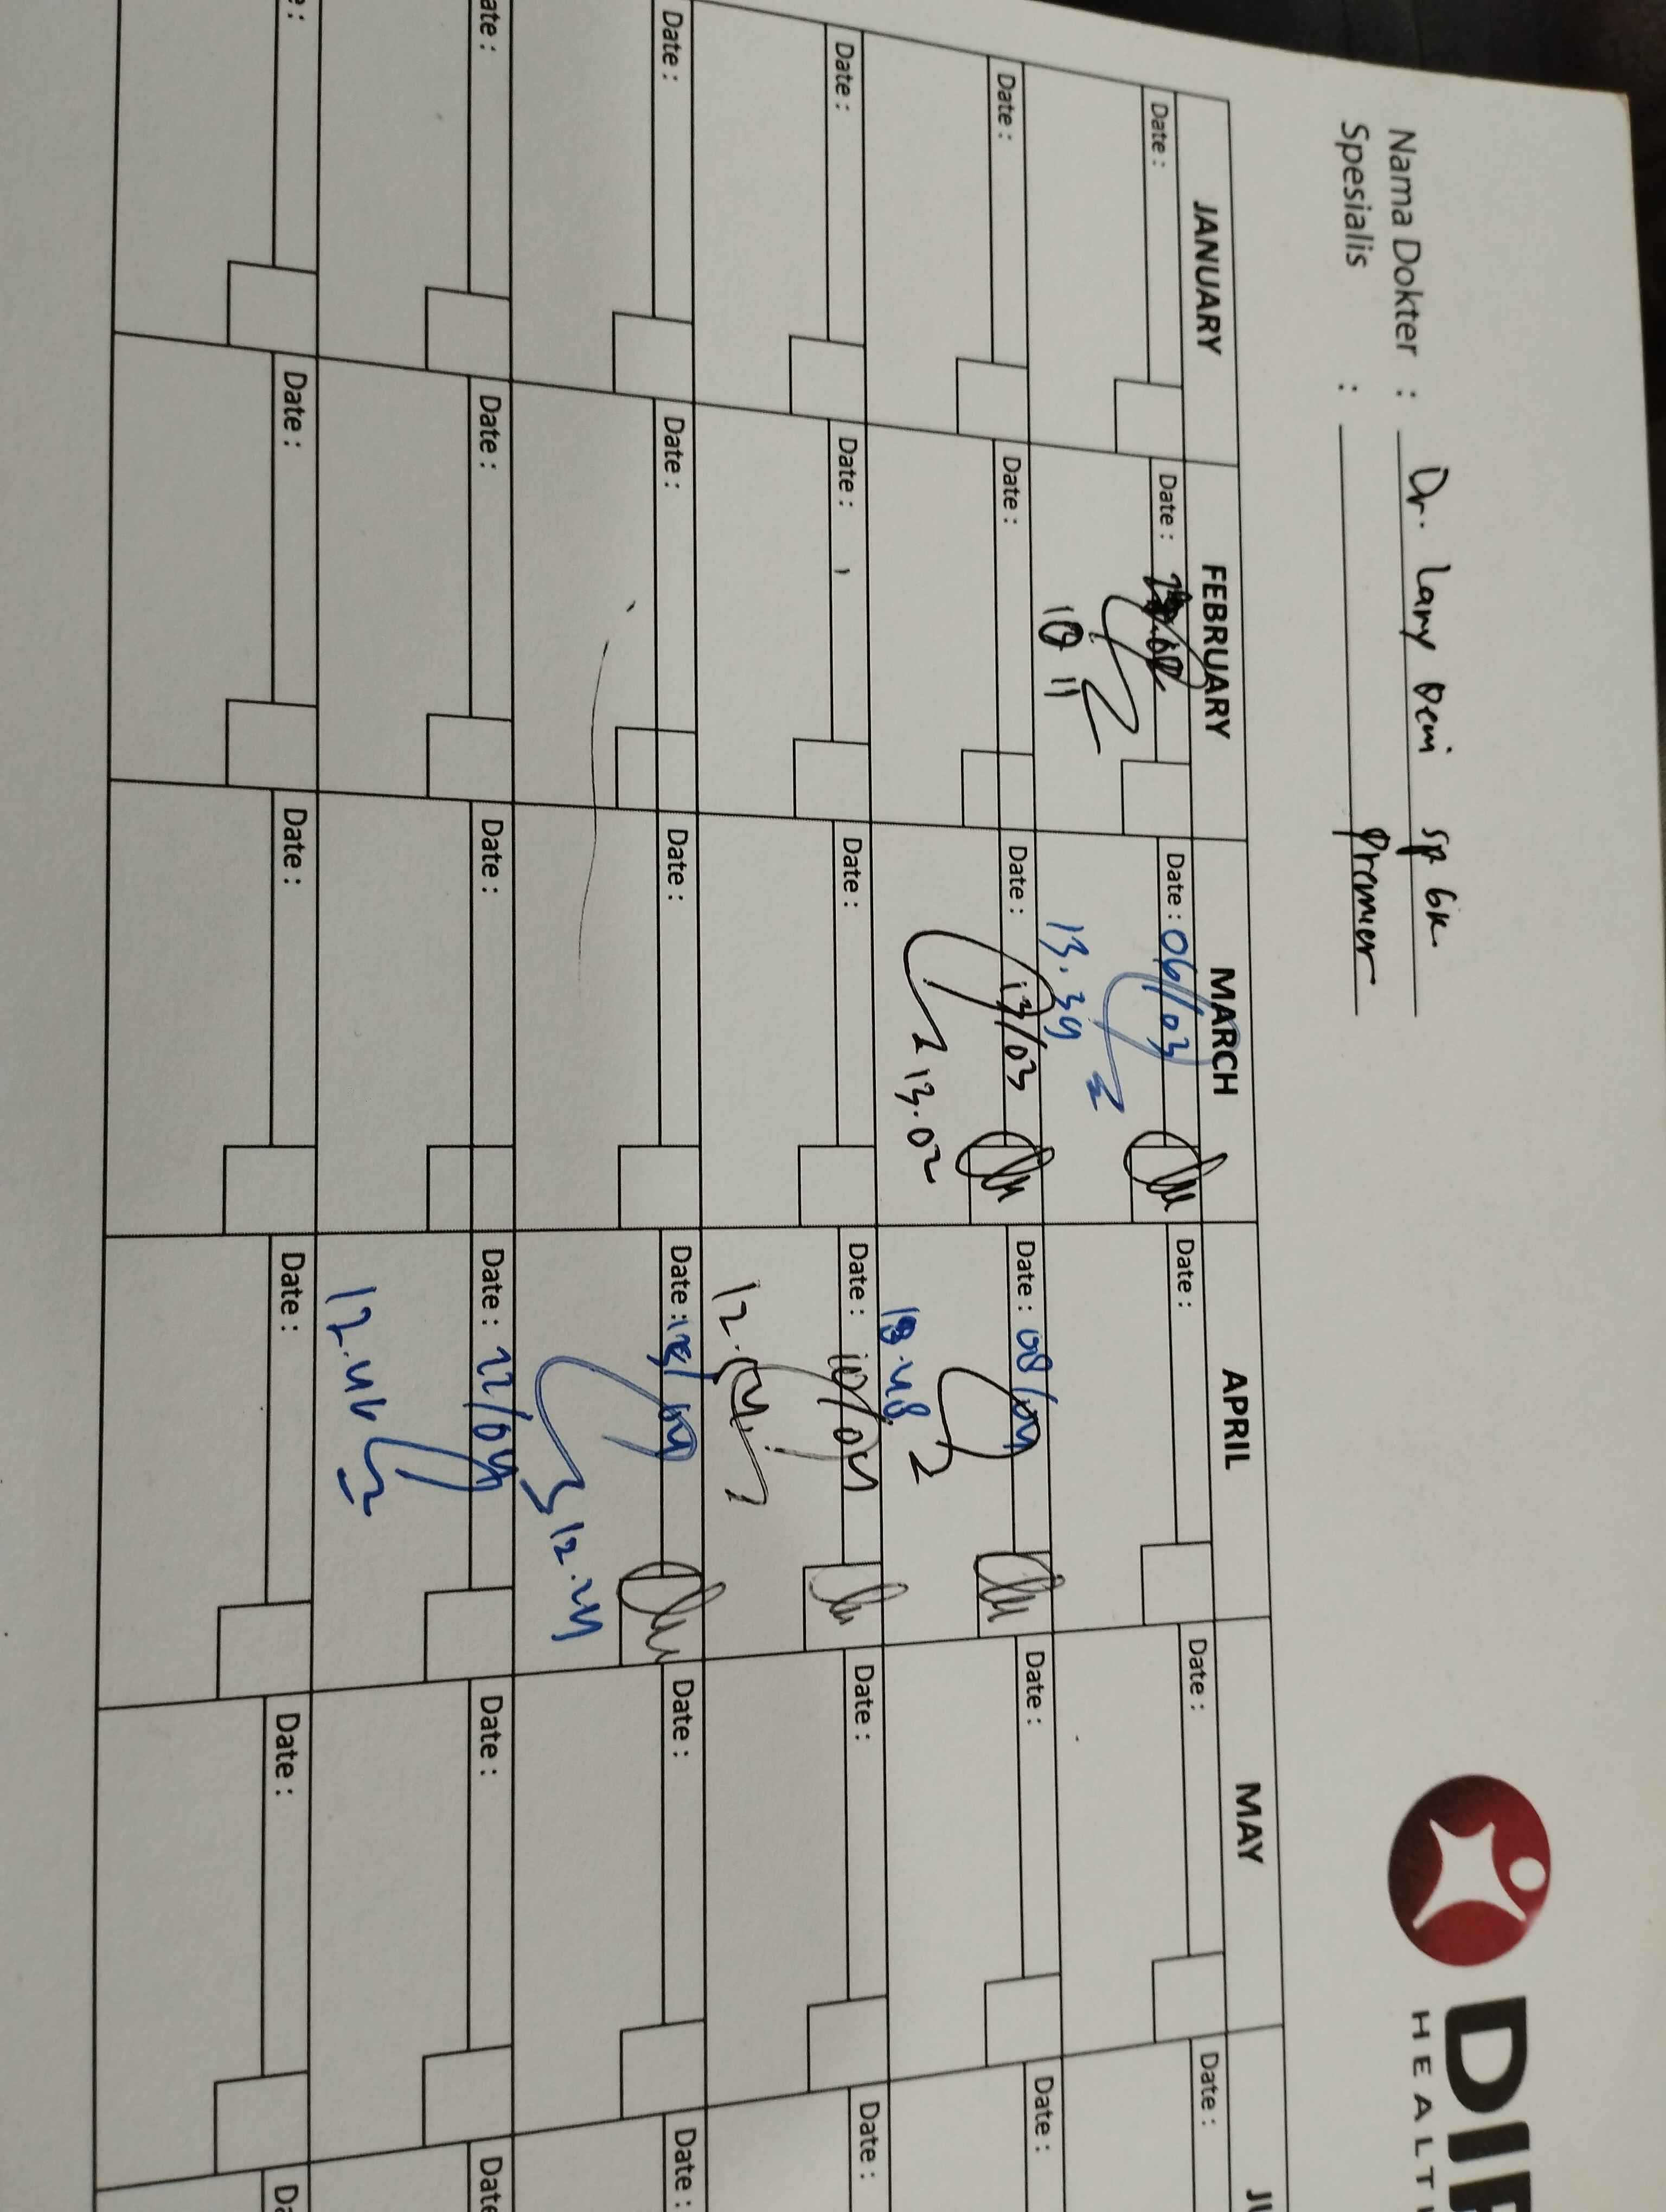 Nama Dokter : Dr. Lany Devi Sp GK
Spesialis : Premier
HEALT
JANUARY FEBRUARY MARCH APRIL MAY JU
Date : Date : Date : 06/03 Date : Date : Date :
10 11 13.39
Date : Date : Date : 13/03 Date : 08/04 Date : Date :
13.02 48
Date : Date : Date : Date : 10/04 Date : Date :
12.
Date : Date : Date : Date : Date : Date :
12.24
ate : Date : Date : Date : 22/04 Date : Date
12.46
e : Date : Date : Date : Date : Da